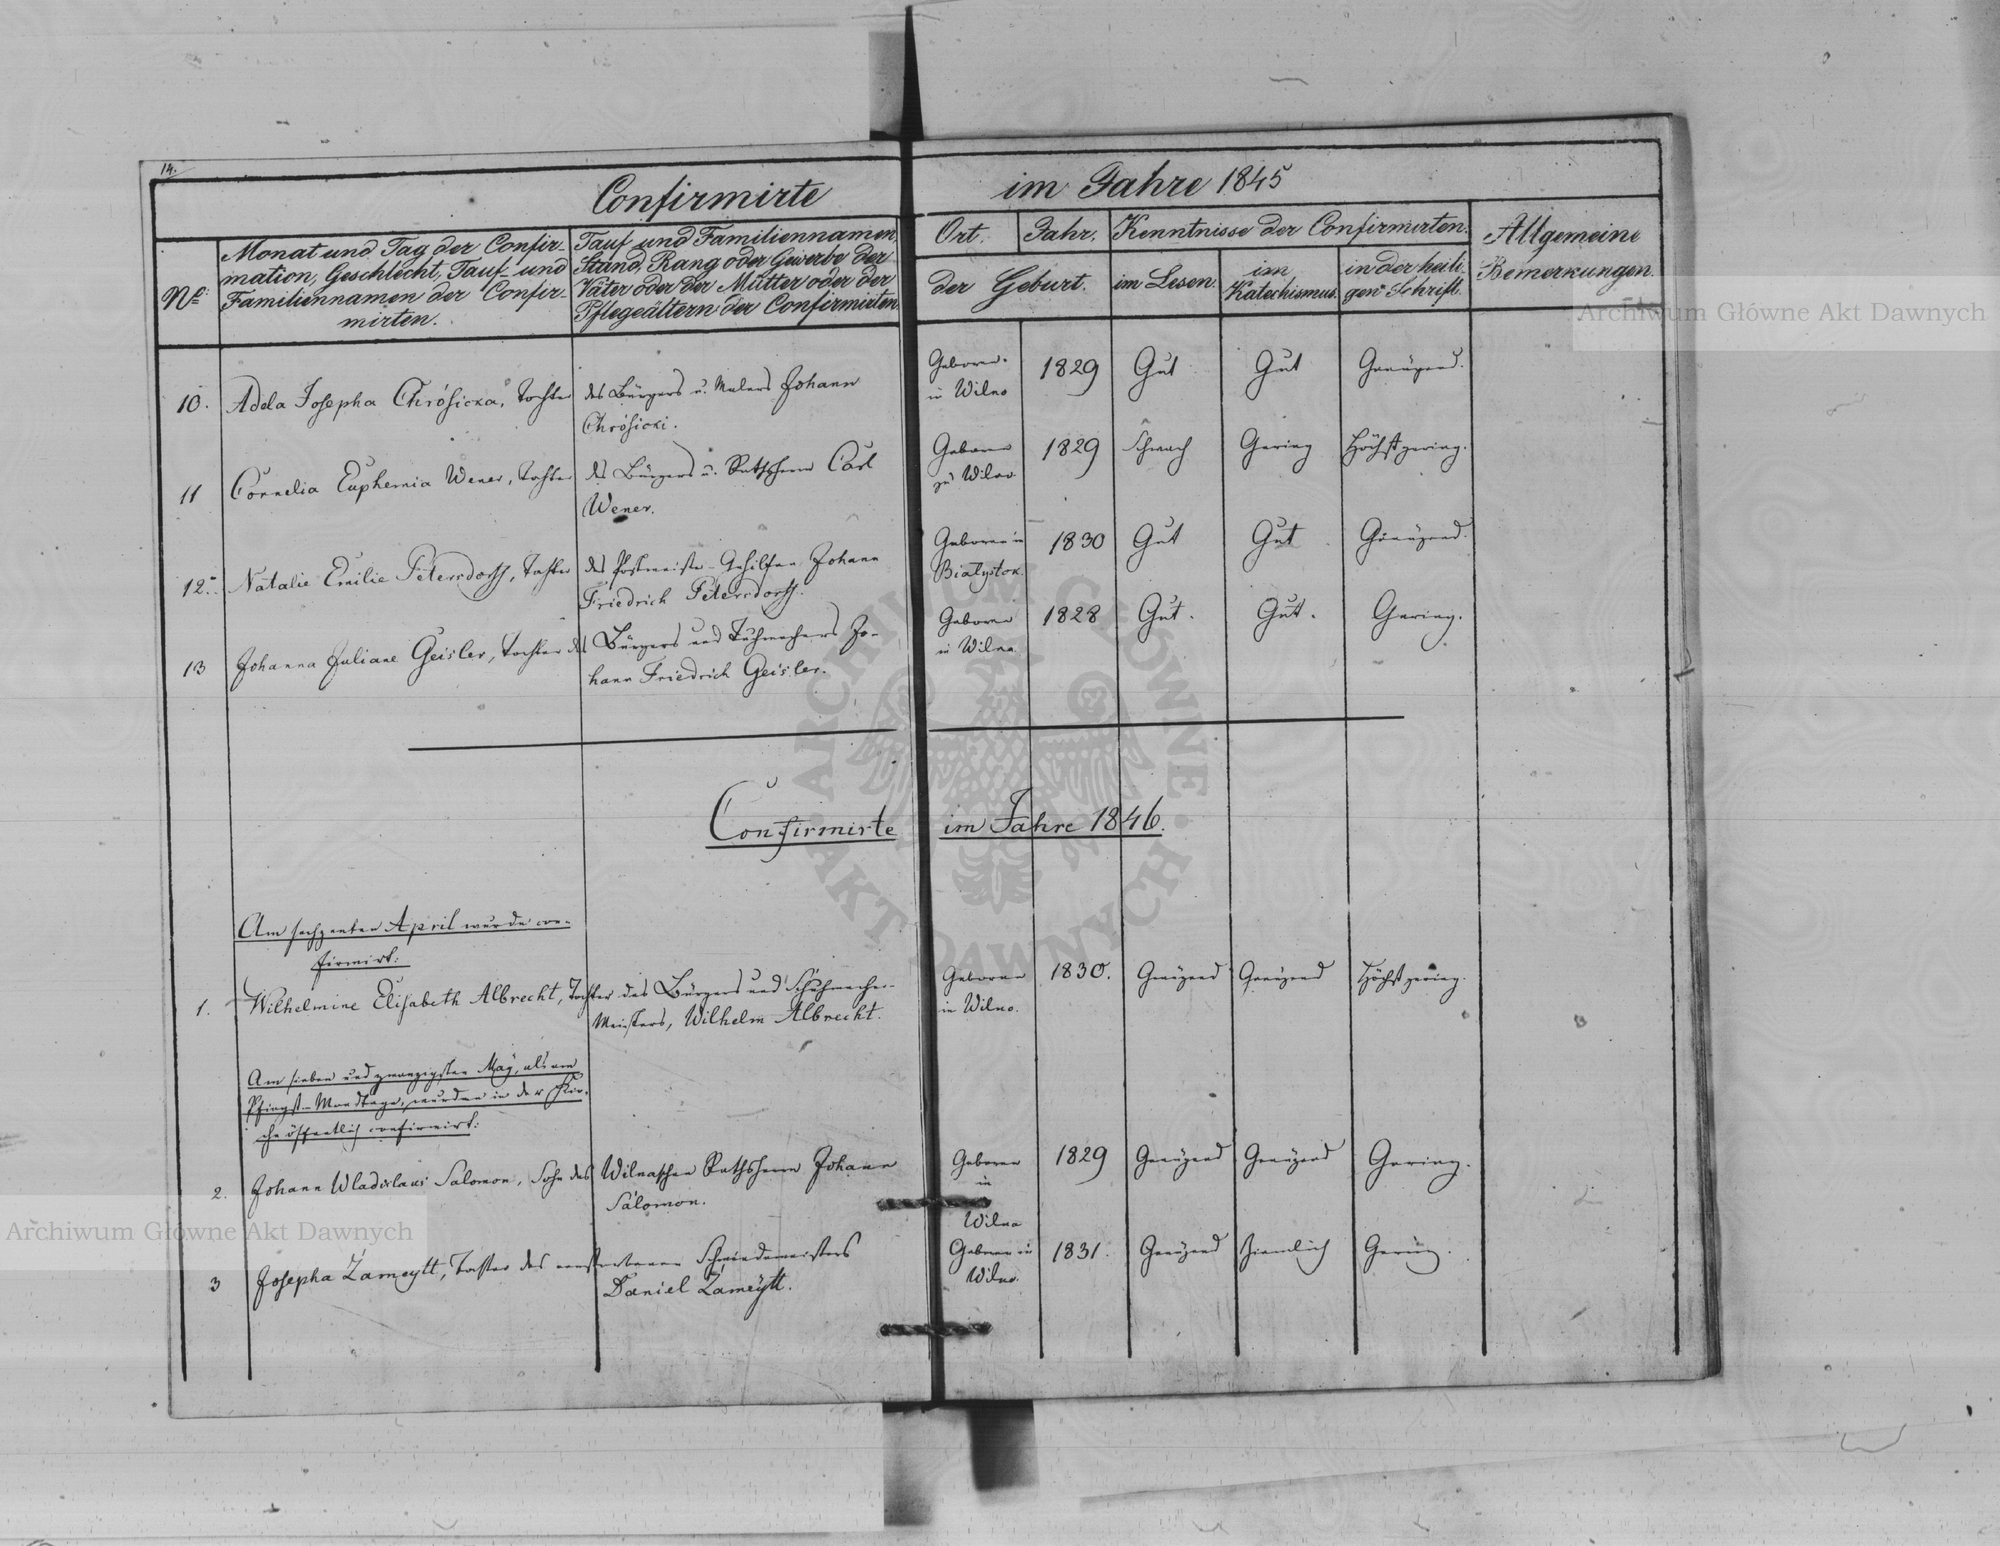 14.
Confirmirte im Jahre 1845
No.
Monat und Tag der Confir-
mation, Geschlecht, Tauf- und
Familiennamen der Confir-
mirten.
Tauf und Familiennamen,
Stand, Rang oder Gewerbe der
Väter oder der Mütter oder der
Pflegeältern der Confirmirten.
Ort.
Jahr.
der Geburt.
Kenntnisse der Confirmirten.
im Lesen.
im
Katechismus.
in der heili-
gen Schrift.
Allgemeine
Bemerkungen.
10. Adela Josepha Chrósicka, Tochter des Bürgers u. Malers Johann
Chrósicki.
Geboren
in Wilno
1829 Gut Gut Genügend.
11 Cornelia Euphemia Wener, Tochter des Bürgers u. Rathsherrn Carl
Wener.
Geboren
zu Wilno
1829 Schwach Gering Höchst gering.
12. Natalie Emilie Petersdorff, Tochter des Postmeister-Gehilfen Johann
Friedrich Petersdorff.
Geboren in
Bialystok.
1830 Gut Gut Genügend.
13 Johanna Juliane Geisler, Tochter des Bürgers und Tuchmachers Jo-
hann Friedrich Geisler.
Geboren
in Wilna
1828 Gut. Gut. Gering.
Confirmirte im Jahre 1846.
Am sechzenten April wurde con-
firmirt:
1. Wilhelmine Elisabeth Albrecht, Tochter des Bürgers und Schuhmacher-
Meisters, Wilhelm Albrecht.
Geboren
in Wilno.
1830. Genügend Genügend Höchst gering.
Am sieben und zwanzigsten May, als am
Pfingst-Mondtage, wurden in der Kir-
che öffentlich confirmirt:
2. Johann Wladislaus Salomon, Sohn des Wilnaschen Rathsherrn Johann
Salomon.
Geboren
in
Wilna
1829 Genügend Genügend Gering.
3 Josepha Zameytt, Tochter des verstorbenen Schmiedemeisters
Daniel Zameytt.
Geboren in
Wilno.
1831. Genügend Ziemlich Gering.
Archiwum Główne Akt Dawnych
Archiwum Główne Akt Dawnych
ARCHIWUM GŁÓWNE AKT DAWNYCH